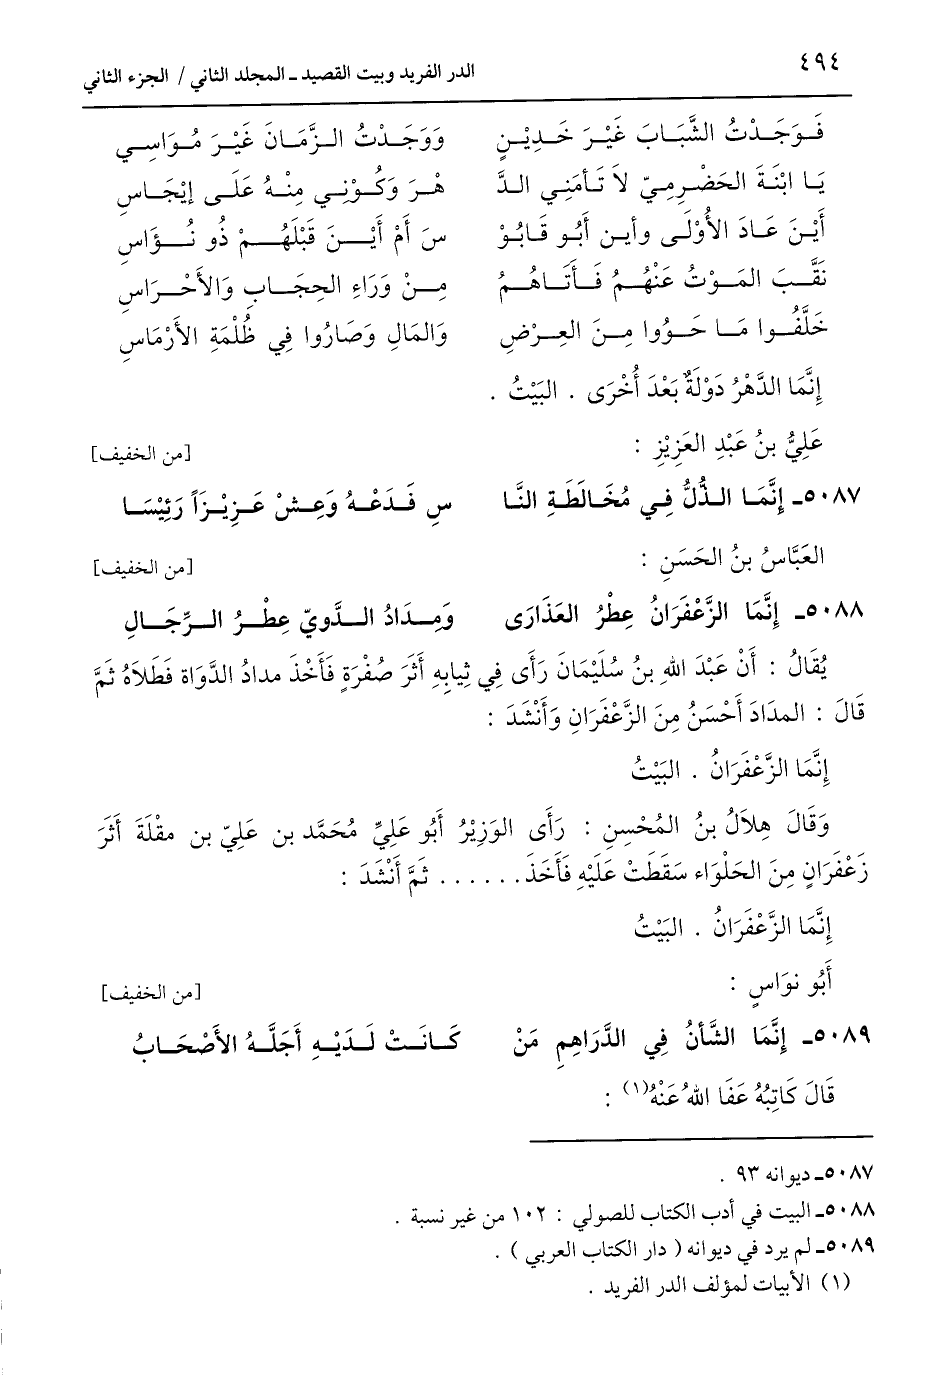 ٤٩٤ الدر الفريد وبيت القصيد ـ المجلد الثاني / الجزء الثاني
فَوَجَدْتُ الشَّبَابَ غَيْرَ خَدِيْنٍ وَوَجَدْتُ الزَّمَانَ غَيْرَ مُوَاسِي
يَا ابْنَةَ الحَضْرِمِيّ لاَ تَأمَنِي الدَّ هْرَ وَكُوْنِي مِنْهُ عَلَى إيْجَاسِ
أَيْنَ عَادَ الأُوْلَى وأين أَبُو قَابُوْ سَ أَمْ أَيْنَ قَبْلَهُمْ ذُو نُوَاسِ
نَقَّبَ المَوْتُ عَنْهُمُ فَأَتَاهُمُ مِنْ وَرَاءِ الحِجَابِ وَالأَحْرَاسِ
خَلَّفُوا مَا حَوُوا مِنَ العِرْضِ وَالمَالِ وَصَارُوا فِي ظُلْمَةِ الأَرْمَاسِ
إِنَّمَا الدَّهْرُ دَوْلَةٌ بَعْدَ أُخْرَى . البَيْتُ .
عَلِيُّ بنُ عَبْدِ العَزِيْزِ : [من الخفيف]
٥٠٨٧ـ إِنَّمَا الذُّلُّ فِي مُخَالَطَةِ النَّا سِ فَدَعْهُ وَعِشْ عَزِيْزَاً رَئِيْسَا
العَبَّاسُ بنُ الحَسَنِ : [من الخفيف]
٥٠٨٨ـ إِنَّمَا الزَّعْفَرَانُ عِطْرُ العَذَارَى وَمِدَادُ الدَّوِيّ عِطْرُ الرِّجَالِ
يُقَالُ : أَنْ عَبْدَ اللهِ بنُ سُلَيْمَانَ رَأَى فِي ثِيابِهِ أَثَرَ صُفْرَةٍ فَأَخْذَ مدادُ الدَّوَاة فَطَلاَهُ ثمَّ
قَالَ : المدَادَ أَحْسَنُ مِنَ الزَّعْفَرَانِ وَأَنْشَدَ :
إِنَّمَا الزَّعْفَرَانُ . البَيْتُ
وَقَالَ هِلاَلُ بنُ المُحْسِنِ : رَأَى الوَزِيْرُ أَبُو عَلِيٍّ مُحَمَّد بن عَلِيّ بن مقْلَةَ أَثَرَ
زَعْفَرَانٍ مِنَ الحَلْوَاء سَقَطَتْ عَلَيْهِ فَأَخَذَ. . . . . . ثمَّ أَنْشَدَ :
إِنَّمَا الزَّعْفَرَانُ . البَيْتُ
أَبُو نوَاسٍ : [من الخفيف]
٥٠٨٩ـ إِنَّمَا الشَّأنُ فِي الدَّرَاهِمِ مَنْ كَانَتْ لَدَيْهِ أَجَلَّهُ الأَصْحَابُ
قَالَ كَاتِبُهُ عَفَا اللهُ عَنْهُ(١) :
٥٠٨٧ـ ديوانه ٩٣ .
٥٠٨٨ـ البيت في أدب الكتاب للصولي : ١٠٢ من غير نسبة .
٥٠٨٩ـ لم يرد في ديوانه ( دار الكتاب العربي ) .
(١) الأبيات لمؤلف الدر الفريد .